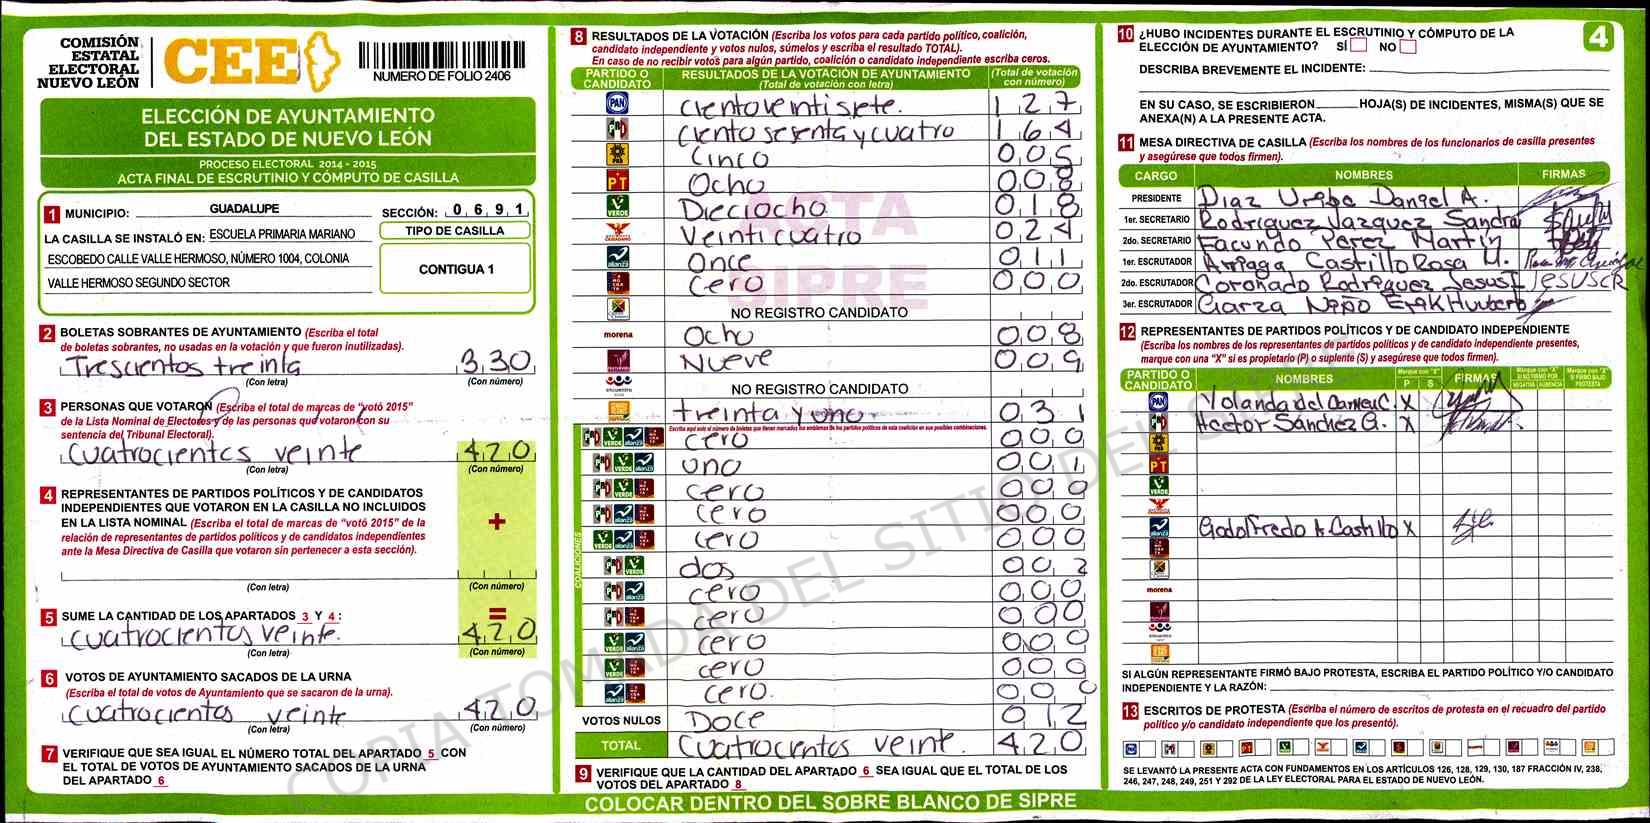 COMISIÓN
ESTATAL
ELECTORAL
NUEVO LEÓN
CEE
NUMERO DE FOLIO 2406
ELECCIÓN DE AYUNTAMIENTO
DEL ESTADO DE NUEVO LEÓN
PROCESO ELECTORAL 2014 - 2015
ACTA FINAL DE ESCRUTINIO Y CÓMPUTO DE CASILLA
1 MUNICIPIO: GUADALUPE SECCIÓN: 0 6 9 1
LA CASILLA SE INSTALÓ EN: ESCUELA PRIMARIA MARIANO
ESCOBEDO CALLE VALLE HERMOSO, NÚMERO 1004, COLONIA
VALLE HERMOSO SEGUNDO SECTOR
TIPO DE CASILLA
CONTIGUA 1
2 BOLETAS SOBRANTES DE AYUNTAMIENTO (Escriba el total
de boletas sobrantes, no usadas en la votación y que fueron inutilizadas).
Trescientos treinta 330
(Con letra) (Con número)
3 PERSONAS QUE VOTARON (Escriba el total de marcas de "votó 2015"
de la Lista Nominal de Electores y de las personas que votaron con su
sentencia del Tribunal Electoral).
cuatrocientos veinte 420
(Con letra) (Con número)
4 REPRESENTANTES DE PARTIDOS POLÍTICOS Y DE CANDIDATOS
INDEPENDIENTES QUE VOTARON EN LA CASILLA NO INCLUIDOS
EN LA LISTA NOMINAL (Escriba el total de marcas de "votó 2015" de la
relación de representantes de partidos políticos y de candidatos independientes
ante la Mesa Directiva de Casilla que votaron sin pertenecer a esta sección).
+
(Con letra) (Con número)
=
5 SUME LA CANTIDAD DE LOS APARTADOS 3 Y 4 :
cuatrocientos veinte. 420
(Con letra) (Con número)
6 VOTOS DE AYUNTAMIENTO SACADOS DE LA URNA
(Escriba el total de votos de Ayuntamiento que se sacaron de la urna).
Cuatrocientos veinte 420
(Con letra) (Con número)
7 VERIFIQUE QUE SEA IGUAL EL NÚMERO TOTAL DEL APARTADO 5 CON
EL TOTAL DE VOTOS DE AYUNTAMIENTO SACADOS DE LA URNA
DEL APARTADO 6
8 RESULTADOS DE LA VOTACIÓN (Escriba los votos para cada partido político, coalición,
candidato independiente y votos nulos, súmelos y escriba el resultado TOTAL).
En caso de no recibir votos para algún partido, coalición o candidato independiente escriba ceros.
PARTIDO O CANDIDATO RESULTADOS DE LA VOTACIÓN DE AYUNTAMIENTO (Total de votación con letra) (Total de votación con número)
PAN cientoveintisiete. 127
PRD ciento sesenta y cuatro 164
PRD Cinco 005
PT Ocho 008
VERDE Dieciocho 018
Veinticuatro 024
Once 011
Cero 000
NO REGISTRO CANDIDATO
morena Ocho 008
Nueve 009
encuentro NO REGISTRO CANDIDATO
treinta y uno. 031
COALICIONES
cero 000
uno 001
cero 000
cero 000
cero 000
dos 002
cero 000
cero 000
cero 000
cero 000
cero. 000
VOTOS NULOS Doce 012
TOTAL Cuatrocientos veinte. 420
9 VERIFIQUE QUE LA CANTIDAD DEL APARTADO 6 SEA IGUAL QUE EL TOTAL DE LOS
VOTOS DEL APARTADO 8
COLOCAR DENTRO DEL SOBRE BLANCO DE SIPRE
ACTA
SIPRE
COPIA TOMADA DEL SITIO DEL
4
10 ¿HUBO INCIDENTES DURANTE EL ESCRUTINIO Y CÓMPUTO DE LA
ELECCIÓN DE AYUNTAMIENTO? SÍ NO
DESCRIBA BREVEMENTE EL INCIDENTE:
EN SU CASO, SE ESCRIBIERON HOJA(S) DE INCIDENTES, MISMA(S) QUE SE
ANEXA(N) A LA PRESENTE ACTA.
11 MESA DIRECTIVA DE CASILLA (Escriba los nombres de los funcionarios de casilla presentes
y asegúrese que todos firmen).
CARGO NOMBRES FIRMAS
PRESIDENTE Diaz Uribe Daniel A.
1er. SECRETARIO Rodriguez Vazquez Sandra
2do. SECRETARIO Facundo Perez Martin
1er. ESCRUTADOR Arriaga Castillo Rosa M.
2do. ESCRUTADOR Coronado Rodriguez Jesus I JESUSCR
3er. ESCRUTADOR Garza Niño Erik Humberto
12 REPRESENTANTES DE PARTIDOS POLÍTICOS Y DE CANDIDATO INDEPENDIENTE
(Escriba los nombres de los representantes de partidos políticos y de candidato independiente presentes,
marque con una "X" si es propietario (P) o suplente (S) y asegúrese que todos firmen).
PARTIDO O CANDIDATO NOMBRES Marque con "X" P S FIRMAS Marque con "X" SI NO FIRMÓ POR NEGATIVA AUSENCIA Marque con "X" SI FIRMÓ BAJO PROTESTA
PAN Yolanda del Carmen C. X
Hector Sánchez G. X
PRD
PT
VERDE
Godolfredo A Castillo X
morena
encuentro
SI ALGÚN REPRESENTANTE FIRMÓ BAJO PROTESTA, ESCRIBA EL PARTIDO POLÍTICO Y/O CANDIDATO
INDEPENDIENTE Y LA RAZÓN:
13 ESCRITOS DE PROTESTA (Escriba el número de escritos de protesta en el recuadro del partido
político y/o candidato independiente que los presentó).
SE LEVANTÓ LA PRESENTE ACTA CON FUNDAMENTOS EN LOS ARTÍCULOS 126, 128, 129, 130, 187 FRACCIÓN IV, 238,
246, 247, 248, 249, 251 Y 292 DE LA LEY ELECTORAL PARA EL ESTADO DE NUEVO LEÓN.